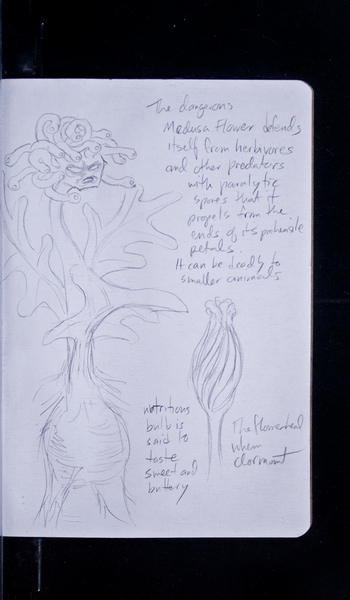 The dangerous
Medusa Flower defends
itself from herbivores
and other predators
with paralytic
spores that it
propels from the
ends of its prehensile
petals.
It can be deadly to
smaller animals
nutritious
bulb is
said to
taste
sweet and
buttery
The flowerhead
when
dormant